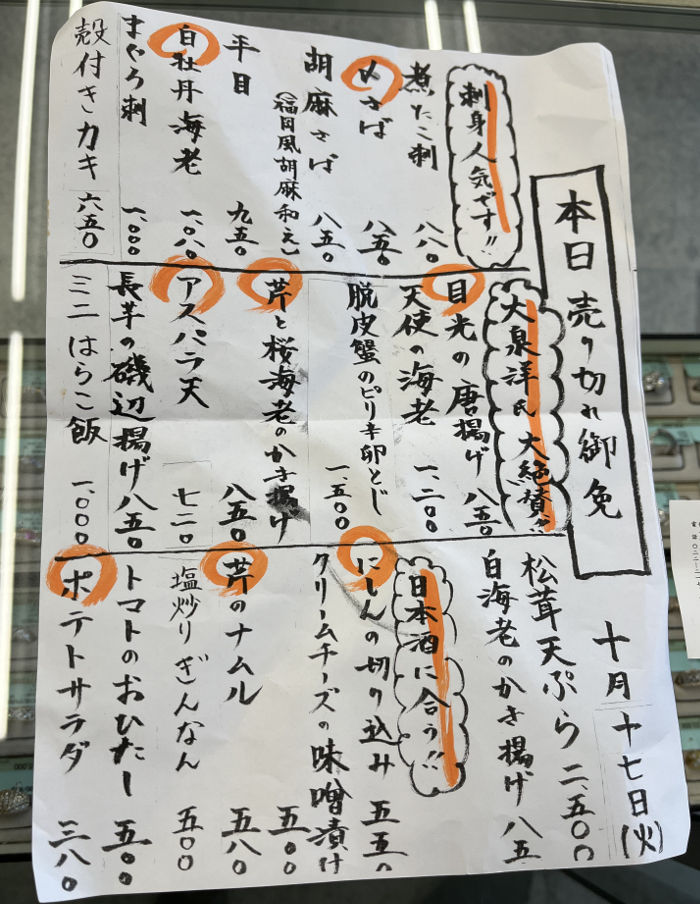 本日売り切れ御免
十月十七日(火)
刺身人気です!!
煮たこ刺 八八〇
〆さば 八五〇
胡麻さば 八五〇
(福岡風胡麻和え)
平目 九五〇
白牡丹海老 一、〇八〇
まぐろ刺 一、〇〇〇
殻付きカキ 六五〇
大泉洋氏 大絶賛!!
目光の唐揚げ 八五〇
天使の海老 一、二〇〇
脱皮蟹のピリ辛卵とじ 一、五〇〇
芹と桜海老のかき揚げ 八五〇
アスパラ天 七二〇
長芋の磯辺揚げ 八五〇
ミニはらこ飯 一、〇〇〇
松茸天ぷら 二、五〇〇
白海老のかき揚げ 八五
日本酒に合う!!
にしんの切り込み 五五〇
クリームチーズの味噌漬け 五〇〇
芹のナムル 五八〇
塩炒りぎんなん 五〇〇
トマトのおひたし 五〇〇
ポテトサラダ 三八〇